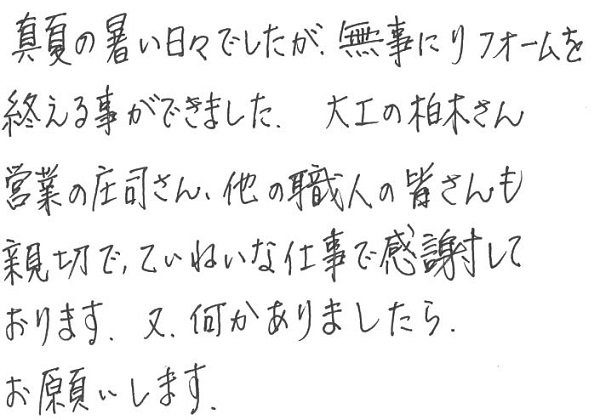 真夏の暑い日々でしたが、無事にリフォームを
終える事ができました。 大工の柏木さん
営業の庄司さん、他の職人の皆さんも
親切で、ていねいな仕事で感謝して
おります。又、何かありましたら、
お願いします。